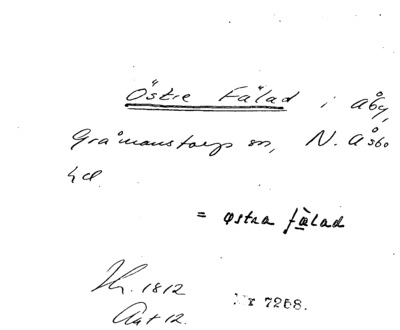 Östre Fälad i Åby,
Gråmanstorps sn, N. Åsbo
hd.
= østra fàlad
1812
Akt 12.
Nr 7268.